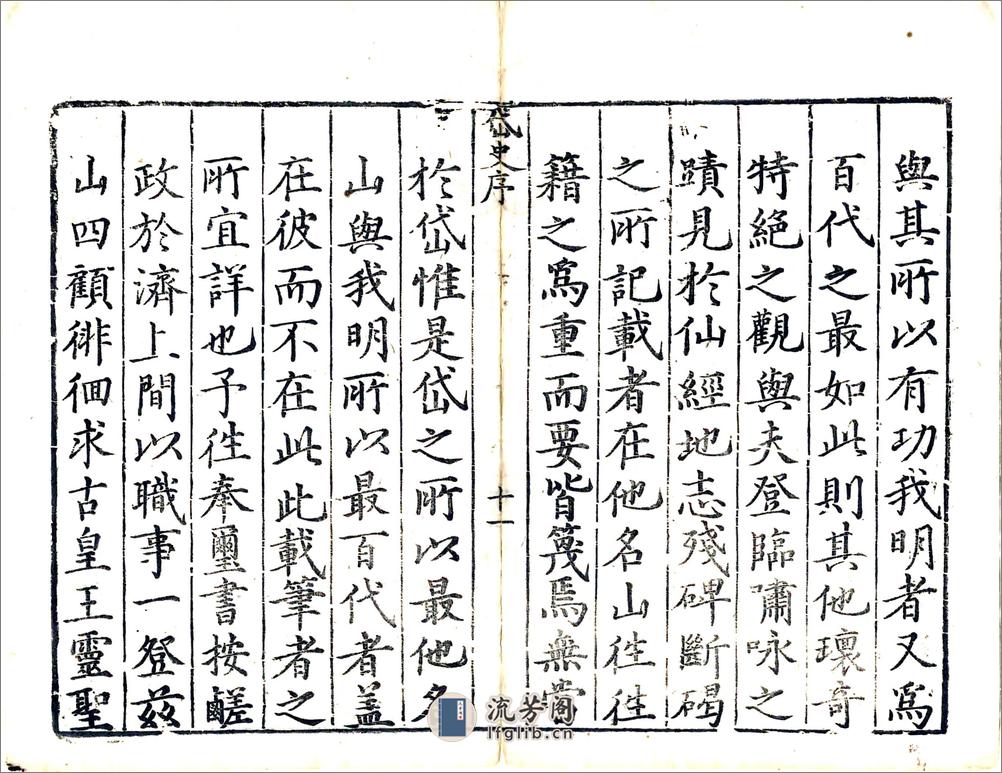 與其所以有功我明者又爲
百代之最如此則其他瓌奇
特絕之觀與夫登臨嘯咏之
蹟見於仙經地志殘碑斷碣
之所記載者在他名山徃徃
籍之爲重而要皆篾焉無當
岱史序
十一
於岱惟是岱之所以最他名
山與我明所以最百代者盖
在彼而不在此此載筆者之
所宜詳也予徃奉璽書按鹺
政於濟上間以職事一登茲
山四顧徘徊求古皇王靈聖
流芳阁
lfglib.cn